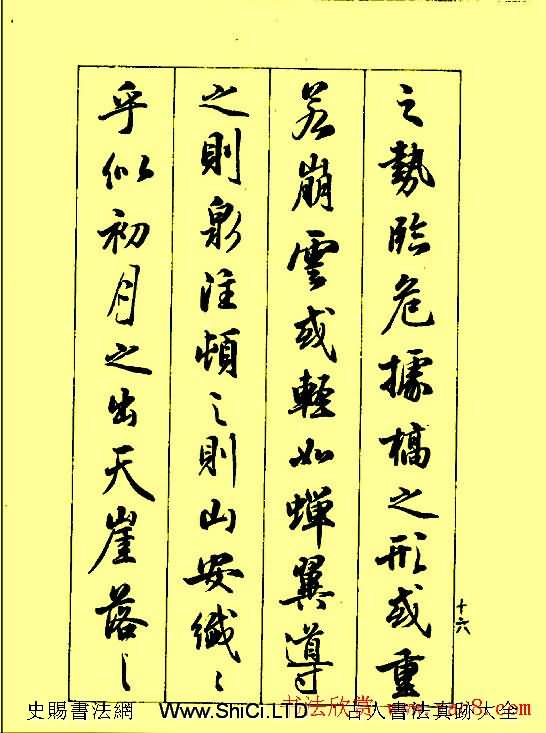 之勢臨危據槁之形或重
若崩雲或輕如蟬翼導
之則泉注頓之則山安纖纖
乎似初月之出天崖落落
十六
史賜書法網 Www.ShiCi.LTD 古人書法真跡大全
书法欣赏